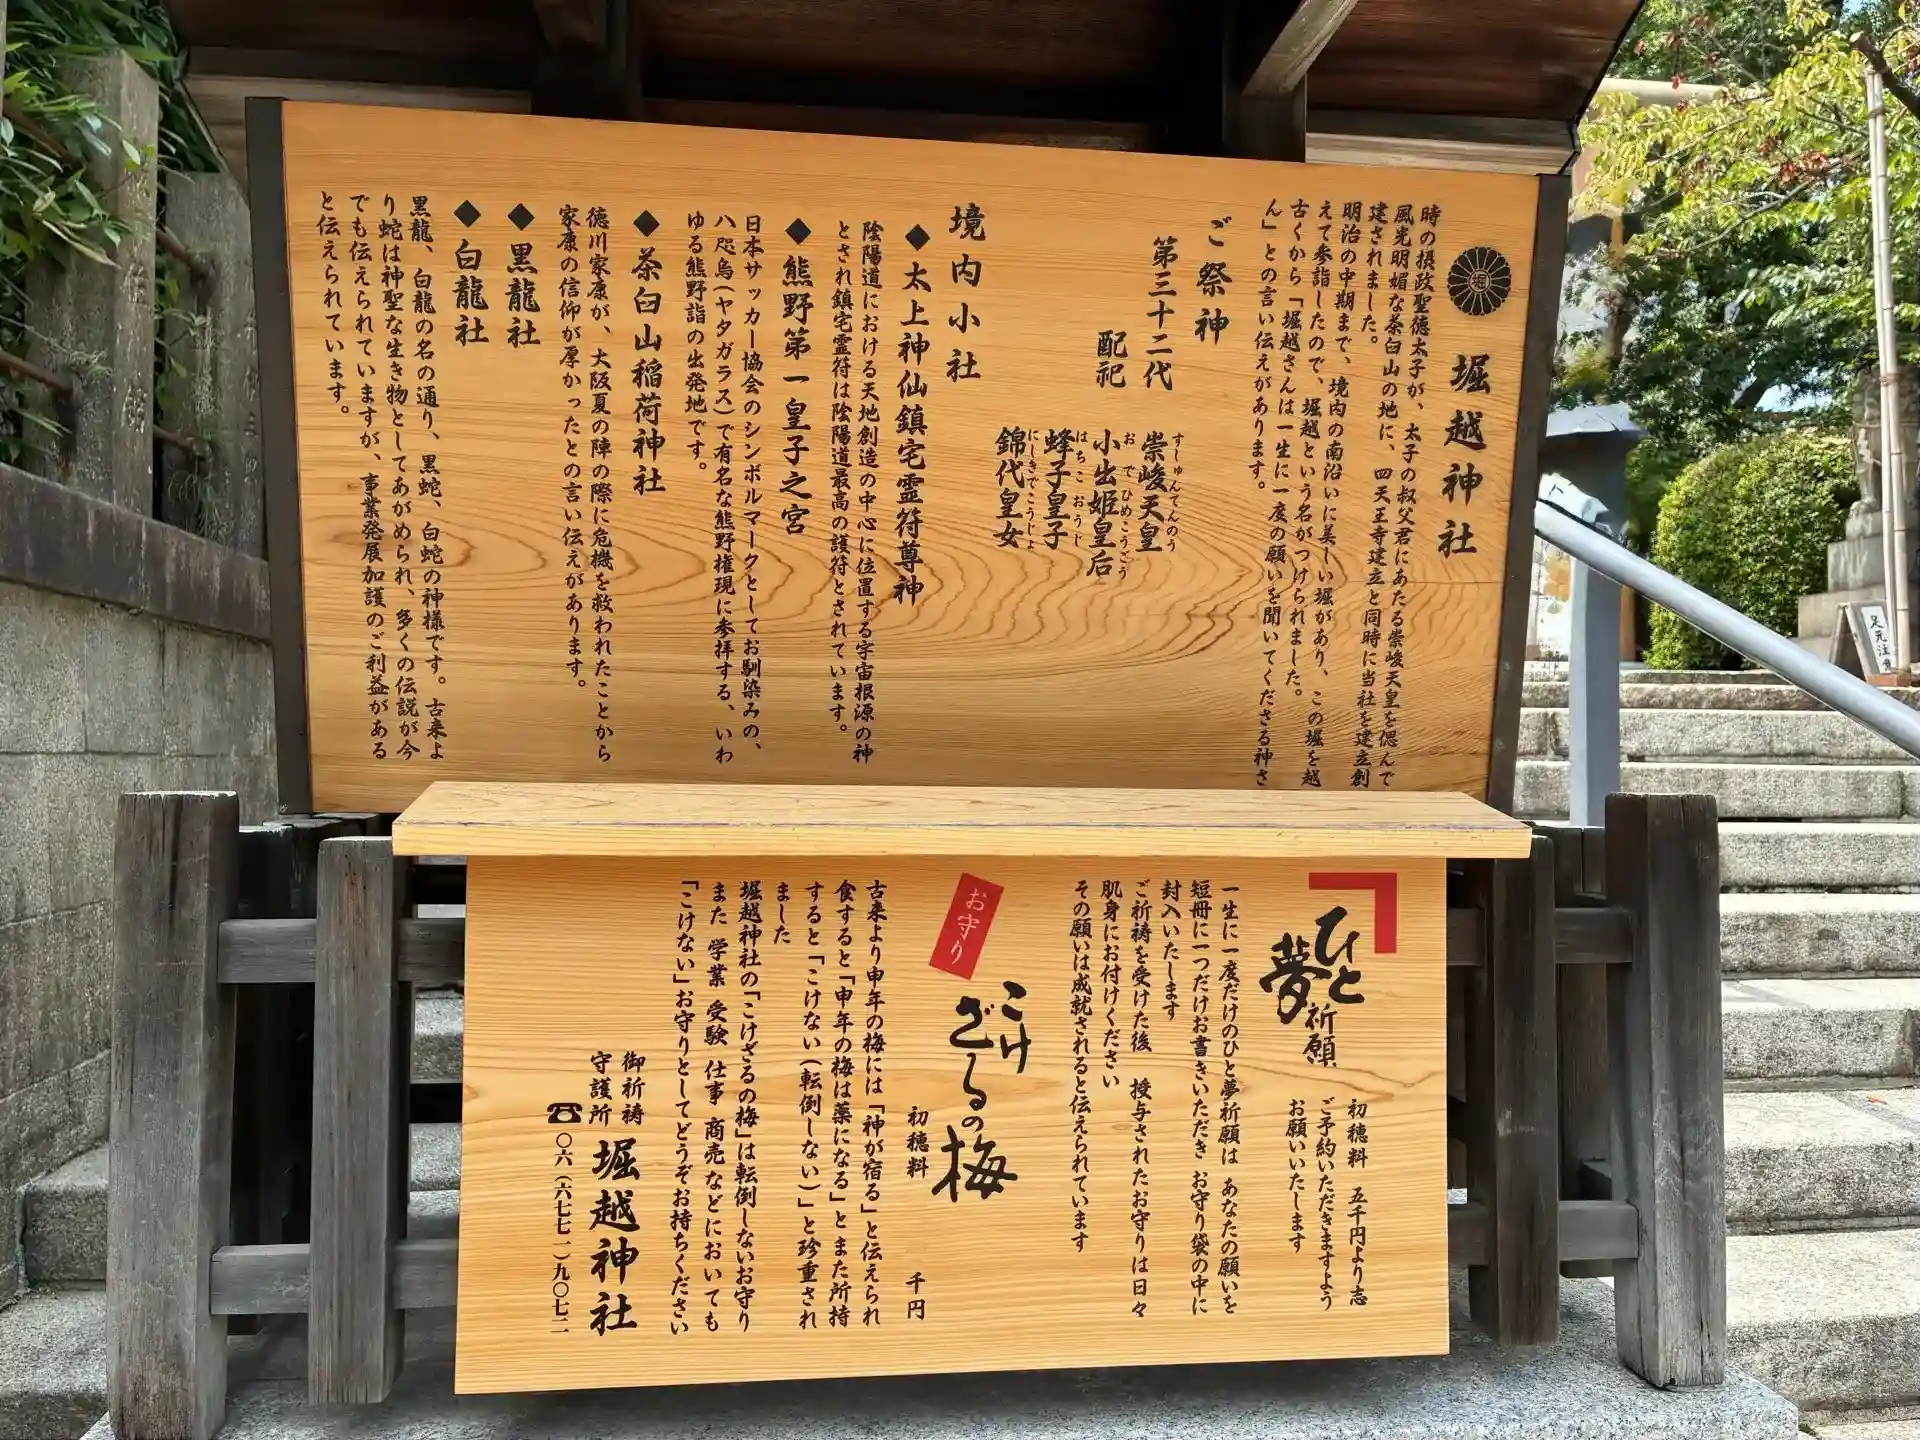 堀
堀越神社
時の摂政聖徳太子が、太子の叔父君にあたる崇峻天皇を偲んで
風光明媚な茶臼山の地に、四天王寺建立と同時に当社を建立創
建されました。
明治の中期まで、境内の南沿いに美しい堀があり、この堀を越
えて参詣したので、堀越という名がつけられました。
古くから「堀越さんは一生に一度の願いを聞いてくださる神さ
ん」との言い伝えがあります。
ご祭神
第三十二代 崇峻天皇
すしゅんてんのう
配祀 小出姫皇后
おでひめこうごう
蜂子皇子
はちこおうじ
錦代皇女
にしきでこうじょ
境内小社
◆太上神仙鎮宅霊符尊神
陰陽道における天地創造の中心に位置する宇宙根源の神
とされ鎮宅霊符は陰陽道最高の護符とされています。
◆熊野第一皇子之宮
日本サッカー協会のシンボルマークとしてお馴染みの、
八咫烏(ヤタガラス)で有名な熊野権現に参拝する、いわ
ゆる熊野詣の出発地です。
◆茶臼山稲荷神社
徳川家康が、大阪夏の陣の際に危機を救われたことから
家康の信仰が厚かったとの言い伝えがあります。
◆黒龍社
◆白龍社
黒龍、白龍の名の通り、黒蛇、白蛇の神様です。古来よ
り蛇は神聖な生き物としてあがめられ、多くの伝説が今
でも伝えられていますが、事業発展加護のご利益がある
と伝えられています。
ひと夢祈願
初穂料 五千円より志
ご予約いただきますよう
お願いいたします
一生に一度だけのひと夢祈願は あなたの願いを
短冊に一つだけお書きいただき お守り袋の中に
封入いたします
ご祈祷を受けた後 授与されたお守りは日々
肌身にお付けください
その願いは成就されると伝えられています
お守り
こけざるの梅
初穂料 千円
古来より申年の梅には「神が宿る」と伝えられ
食すると「申年の梅は薬になる」とまた所持
すると「こけない(転倒しない)」と珍重され
ました
堀越神社の「こけざるの梅」は転倒しないお守り
また 学業 受験 仕事 商売などにおいても
「こけない」お守りとしてどうぞお持ちください
御祈祷
守護所 堀越神社
☎〇六(六七七一)九〇七二
足元注意